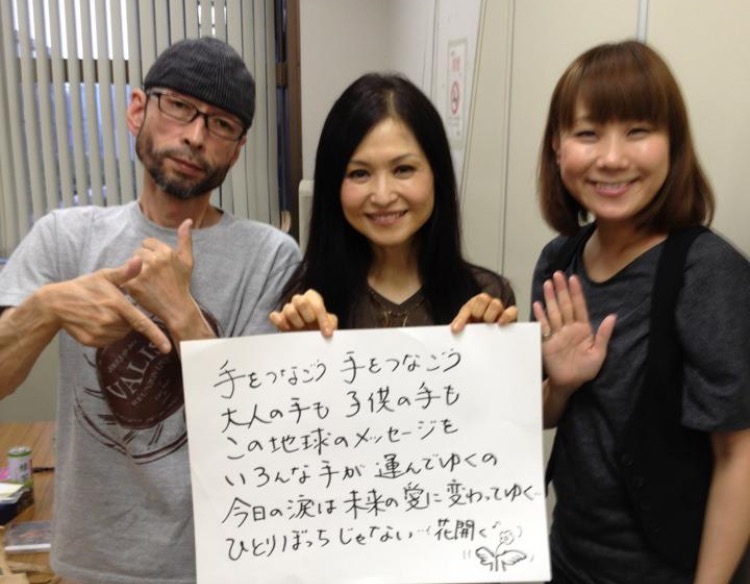 手をつなごう 手をつなごう
大人の手も 子供の手も
この地球のメッセージを
いろんな手が 運んでゆくの
今日の涙は未来の愛に変わってゆく…
ひとりぼっちじゃない…(花開く)
VALIS